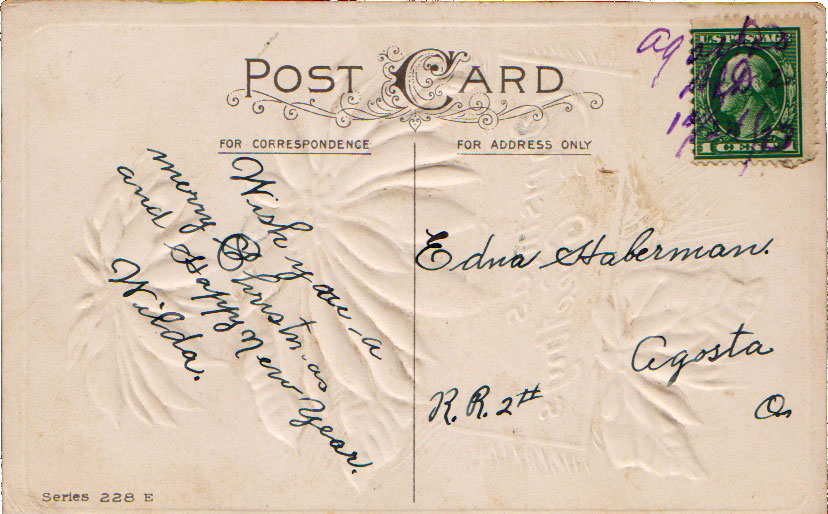 POST CARD
FOR CORRESPONDENCE
FOR ADDRESS ONLY
U.S. POSTAGE
1 CENT 1
Wish you a
merry Christmas
and Happy New Year.
Wilda.
Edna Haberman.
Agosta
R.R. 2#
O
Series 228 E